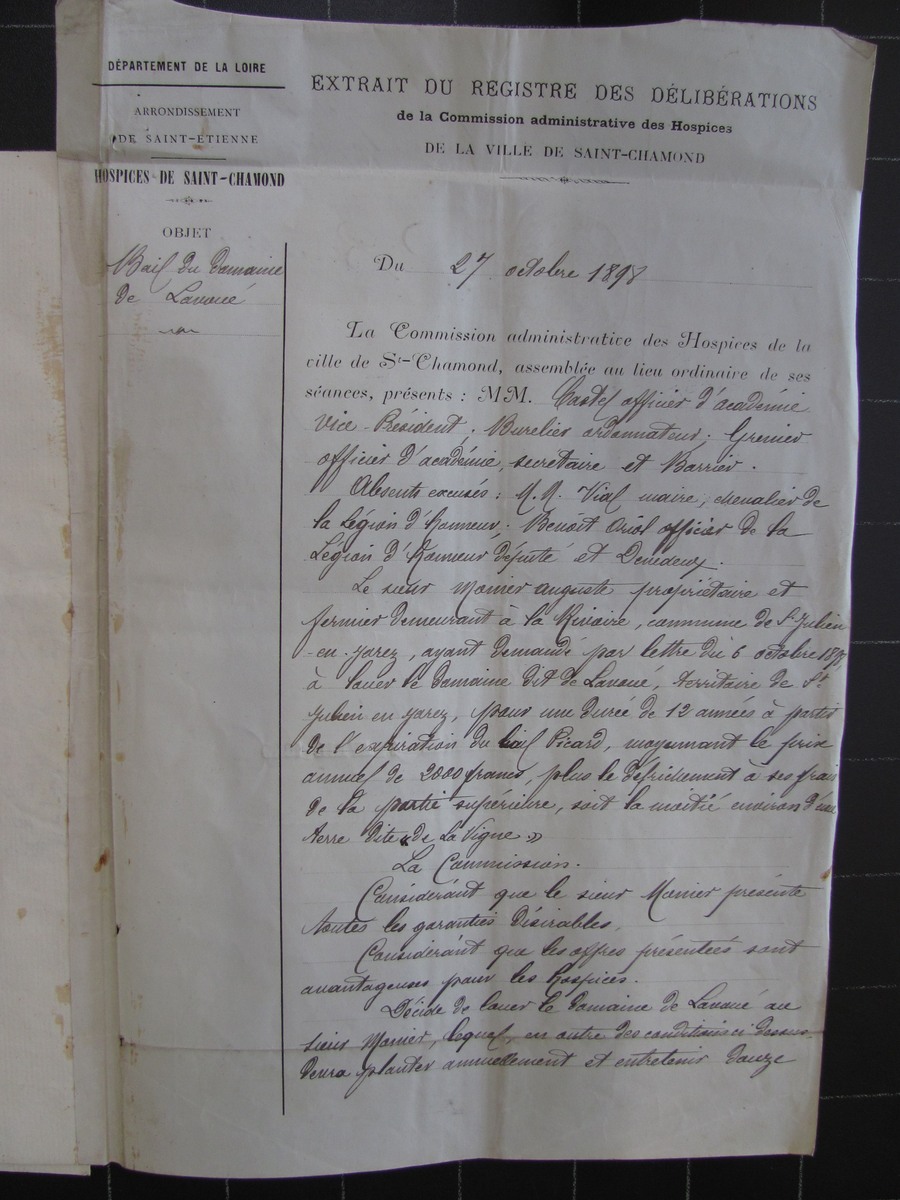 DÉPARTEMENT DE LA LOIRE
ARRONDISSEMENT
DE SAINT-ETIENNE
HOSPICES DE SAINT-CHAMOND
OBJET
Bail du Domaine
de Lavoué
EXTRAIT DU REGISTRE DES DÉLIBÉRATIONS
de la Commission administrative des Hospices
DE LA VILLE DE SAINT-CHAMOND
Du 27 octobre 1898
La Commission administrative des Hospices de la
ville de St-Chamond, assemblée au lieu ordinaire de ses
séances, présents : MM. Castel officier d'académie
Vice-Président ; Burelier ordonnateur ; Grenier
officier d'académie, secrétaire et Barrier.
Absents excusés : M.M. Vial maire, chevalier de
la Légion d'honneur ; Benoît Oriol officier de la
Légion d'Honneur député et Denedeux.
Le sieur Monier auguste propriétaire et
fermier demeurant à la Rivoire, commune de St Julien
-en-Jarez, ayant demandé par lettre du 6 octobre
à louer le domaine dit de Lavoué, territoire de St
Julien en Jarez, pour une durée de 12 années à partir
de l'expiration du bail Picard, moyennant le prix
annuel de 2000 francs, plus le défrichement à ses frais
de la partie supérieure, soit la moitié environ d'une
terre dite « de La Vigne »
La Commission.
Considérant que le sieur Monier présente
toutes les garanties désirables.
Considérant que les offres présentées sont
avantageuses pour les hospices.
Décide de louer le domaine de Lavoué au
sieur Monier, lequel, en outre des conditions ci dessus
devra planter annuellement et entretenir douze